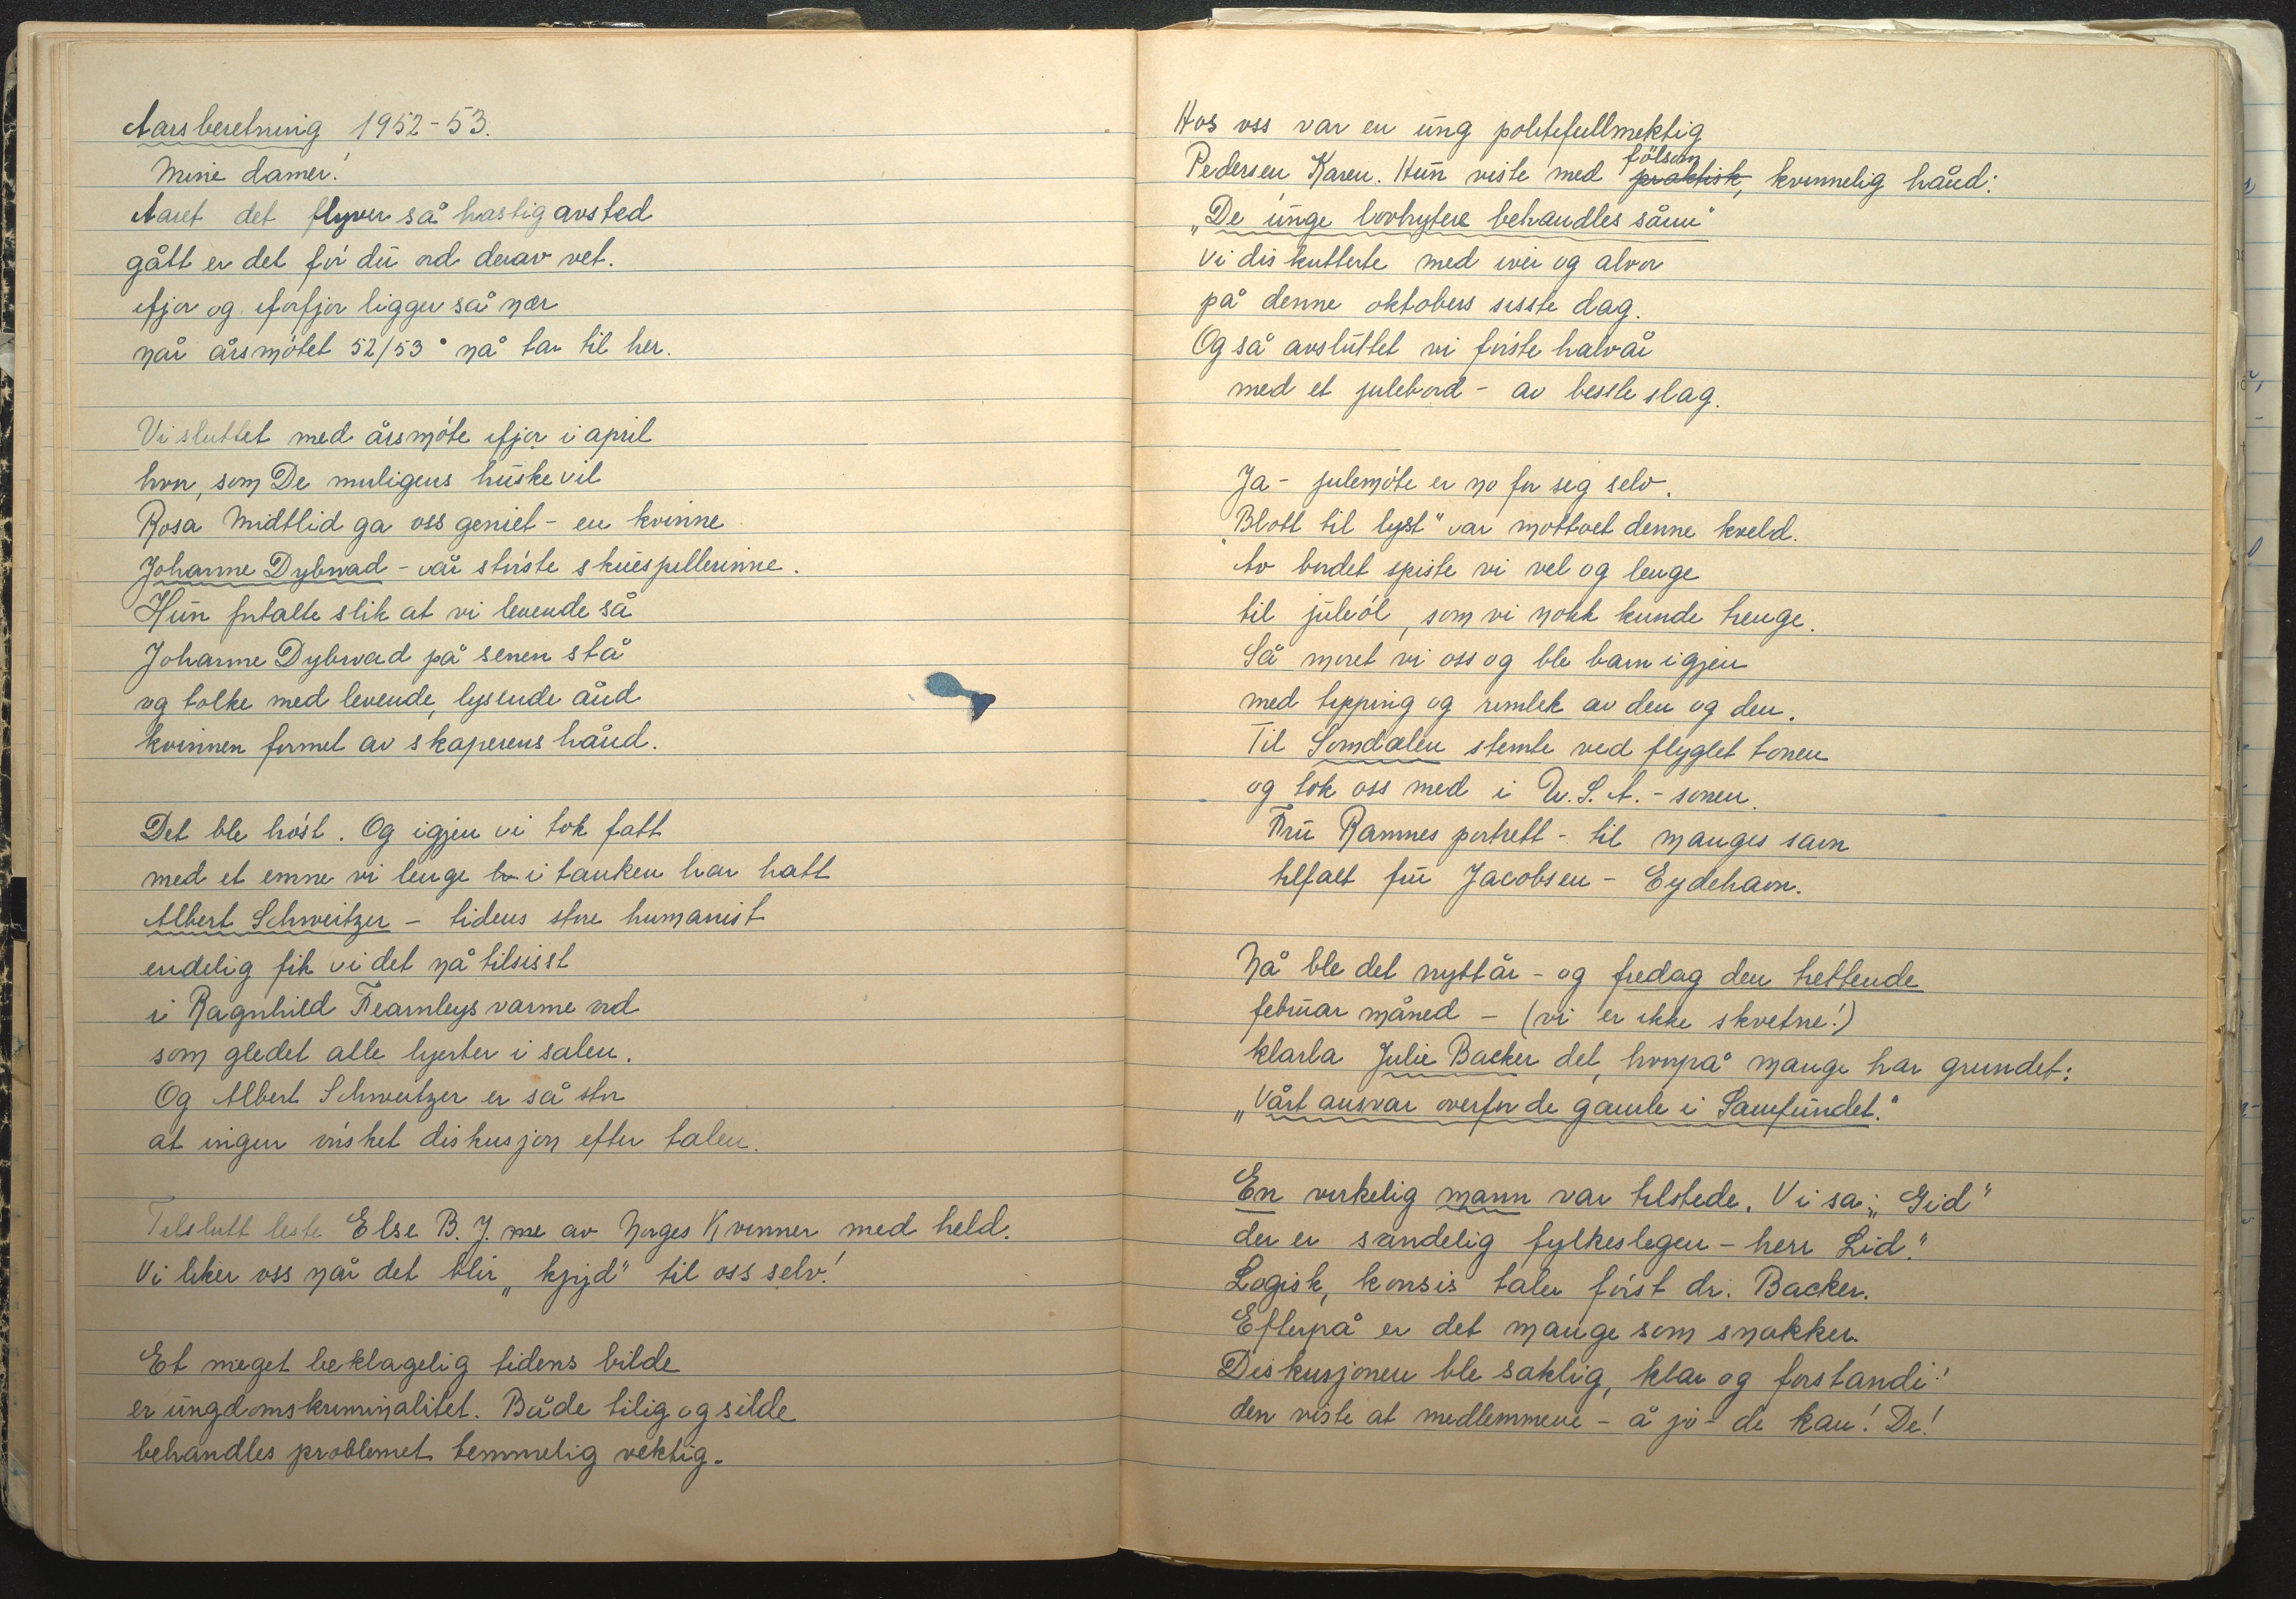 Aarsberetning 1952-53.
Mine damer!
Aaret det flyver så hastig avsted
gått er det før du ord derav vet.
ifjor og iforfjor ligger så nær
når årsmøtet 52/53 nå tar til her.
Vi sluttet med årsmøte ifjor i april
hvor, som De muligens huske vil
Rosa Midtlid ga oss geniet - en kvinne
Johanne Dybwad - vår største skuespillerinne.
Hun fortalte slik at vi levende så
Johanne Dybwad på senen stå
og tolke med levende, lysende ånd
kvinnen formet av skaperens hånd.
Det ble høst. Og igjen vi tok fatt
med et emne vi lenge i tanken har hatt
Albert Schweitzer - tidens store humanist
endelig fik vi det nå tilsisst
i Ragnhild Fearnleys varme ord
som gledet alle hjerter i salen.
Og Albert Schweitzer er så stor
at ingen ønsket diskusjon efter talen.
Tilslutt leste Else B. J. me av Norges Kvinner med held.
Vi liker oss når det blir „kjyd" til oss selv!
Et meget beklagelig tidens bilde
er ungdomskriminalitet. Både tilig og silde
behandles problemet temmelig vektig.
Hos oss var en ung politifullmektig
Pedersen Karen. Hun viste med følsom praktisk, kvinnelig hånd:
„De unge lovbrytere behandles sånn"
Vi diskutterte med iver og alvor
på denne oktobers sisste dag.
Og så avsluttet vi første halvår
med et julebord - av beste slag.
Ja - julemøte er no for seg selv.
„Blott til lyst" var mottoet denne kveld.
Av bordet spiste vi vel og lenge
til juleøl, som vi nokk kunde trenge.
Så moret vi oss og ble barn igjen
med tipping og rimlek av den og den.
Til Somdalen stemte ved flyglet tonen
og tok oss med i U.S.A. - sonen.
Fru Ramnes portrett - til manges savn
tilfalt fru Jacobsen - Eydehavn.
Nå ble det nyttår - og fredag den trettende
februar måned - (vi er ikke skvetne!)
klarla Julie Backer det, hvorpå mange har grundet:
„Vårt ansvar overfor de gamle i Samfundet."
En virkelig mann var tilstede. Vi sa: „Gid"
der er sandelig fylkeslegen - herr Lid."
Logisk, konsis taler først dr. Backer.
Efterpå er det mange som snakker.
Diskusjonen ble saklig, klar og forstandi!
den viste at medlemmene - å jo - de kan! De!